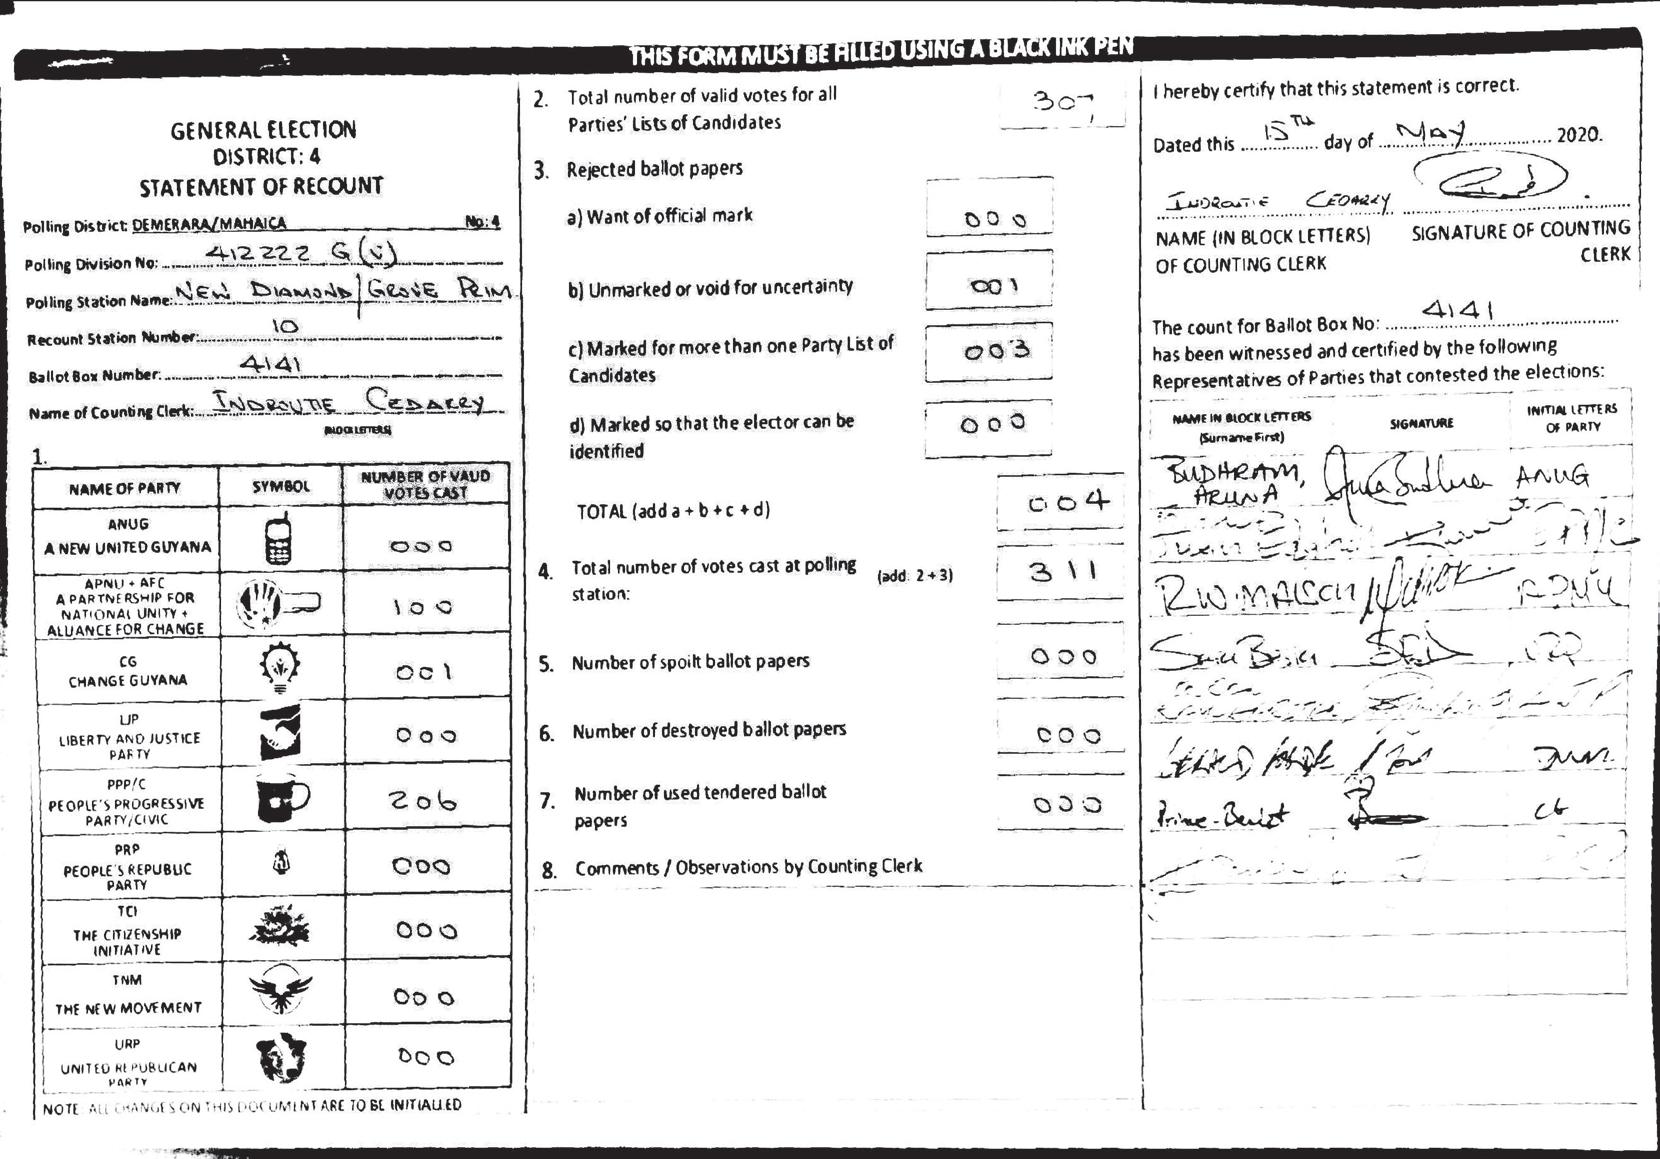 THIS FORM MUST BE FILLED USING A BLACK INK PEN
GENERAL ELECTION
DISTRICT: 4
STATEMENT OF RECOUNT
Polling District: DEMERARA/MAHAICA No: 4
Polling Division No: 412222 G(v)
Polling Station Name: NEW DIAMOND/GROVE PRIM
Recount Station Number: 10
Ballot Box Number: 4141
Name of Counting Clerk: INDROUTIE CEDARRY
(BLOCK LETTERS)
1.
NAME OF PARTY SYMBOL NUMBER OF VALID VOTES CAST
ANUG
A NEW UNITED GUYANA 000
APNU + AFC
A PARTNERSHIP FOR
NATIONAL UNITY + 100
ALLIANCE FOR CHANGE
CG
CHANGE GUYANA 001
LJP
LIBERTY AND JUSTICE 000
PARTY
PPP/C
PEOPLE'S PROGRESSIVE 206
PARTY/CIVIC
PRP
PEOPLE'S REPUBLIC 000
PARTY
TCI
THE CITIZENSHIP 000
INITIATIVE
TNM
THE NEW MOVEMENT 000
URP
UNITED REPUBLICAN 000
PARTY
NOTE: ALL CHANGES ON THIS DOCUMENT ARE TO BE INITIALLED
2. Total number of valid votes for all 307
Parties' Lists of Candidates
3. Rejected ballot papers
a) Want of official mark 000
b) Unmarked or void for uncertainty 001
c) Marked for more than one Party List of 003
Candidates
d) Marked so that the elector can be 000
identified
TOTAL (add a + b + c + d) 004
4. Total number of votes cast at polling (add: 2 + 3) 311
station:
5. Number of spoilt ballot papers 000
6. Number of destroyed ballot papers 000
7. Number of used tendered ballot 000
papers
8. Comments / Observations by Counting Clerk
I hereby certify that this statement is correct.
Dated this 15TH day of MAY 2020.
INDROUTIE CEDARRY
NAME (IN BLOCK LETTERS) SIGNATURE OF COUNTING
OF COUNTING CLERK CLERK
The count for Ballot Box No: 4141
has been witnessed and certified by the following
Representatives of Parties that contested the elections:
NAME IN BLOCK LETTERS SIGNATURE INITIAL LETTERS
(Surname First) OF PARTY
BUDHRAM, ANUG
ARUNA
CG